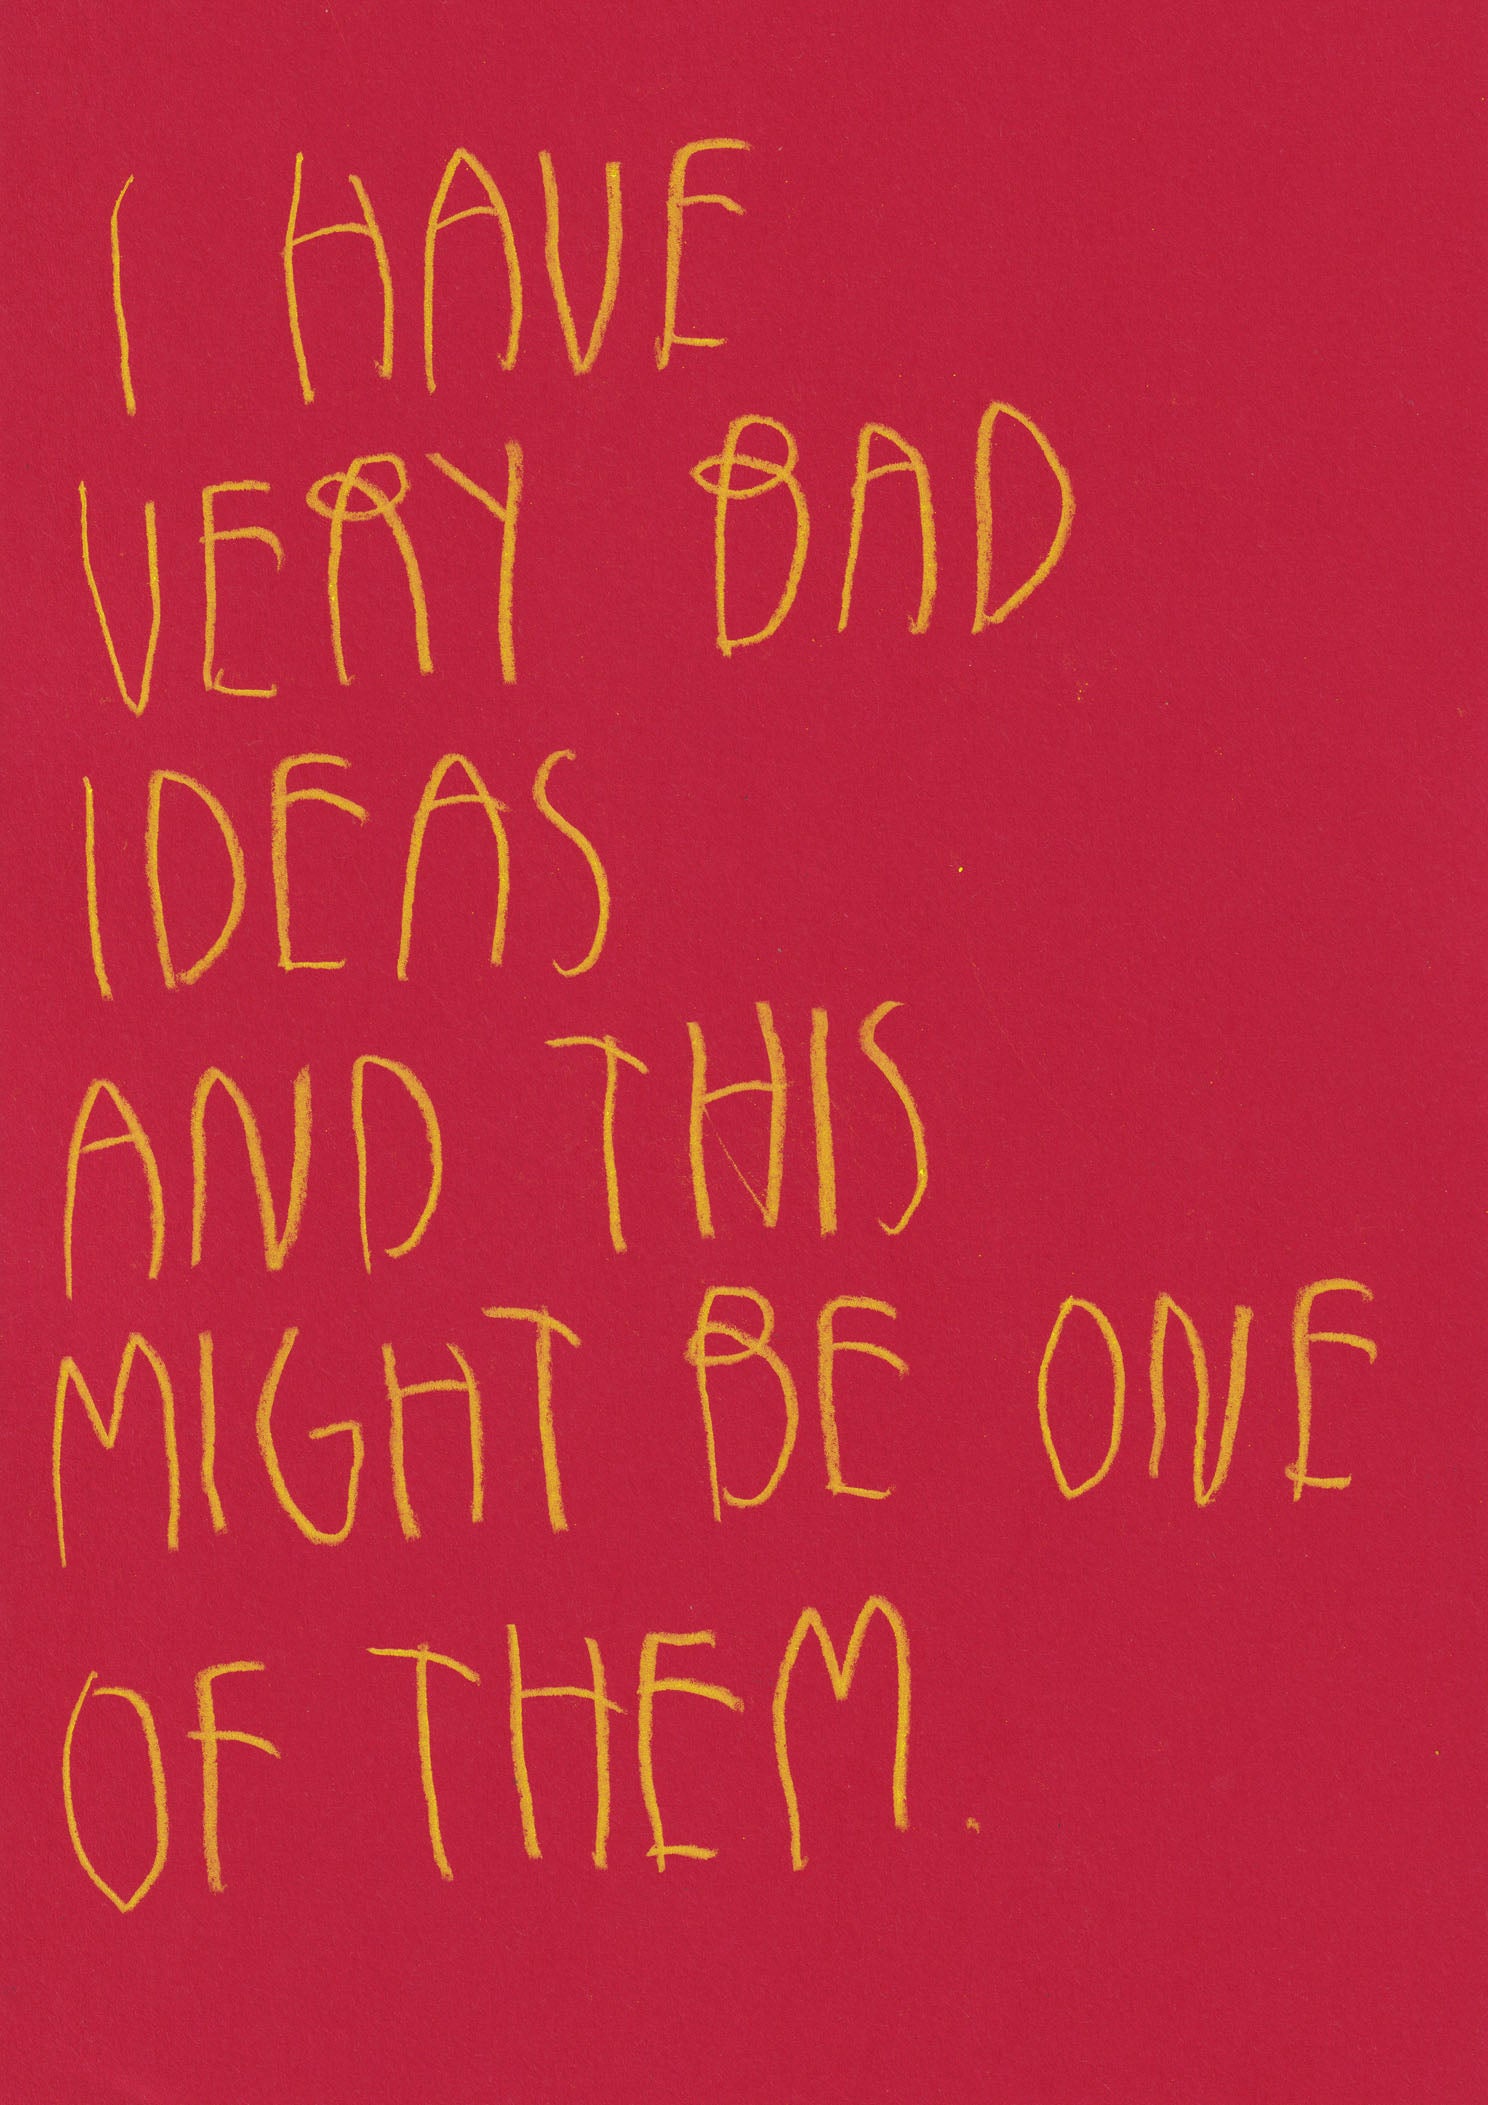 I HAVE
VERY BAD
IDEAS
AND THIS
MIGHT BE ONE
OF THEM.